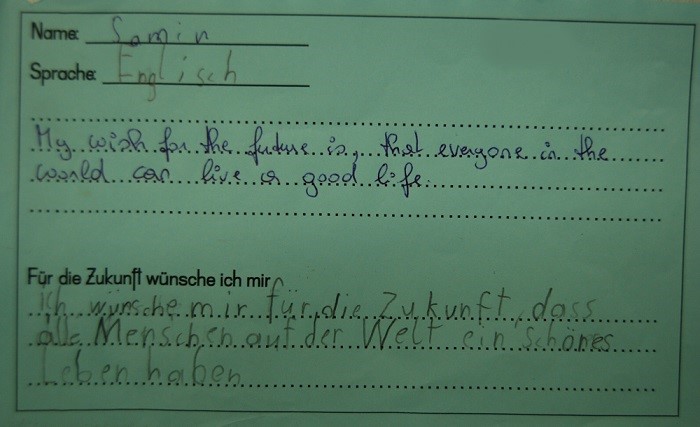 Name: Samin
Sprache: Englisch
My wish for the future is, that everyone in the
world can live a good life.
Für die Zukunft wünsche ich mir
ich wünsche mir für die Zukunft, dass
alle Menschen auf der Welt ein schönes
Leben haben